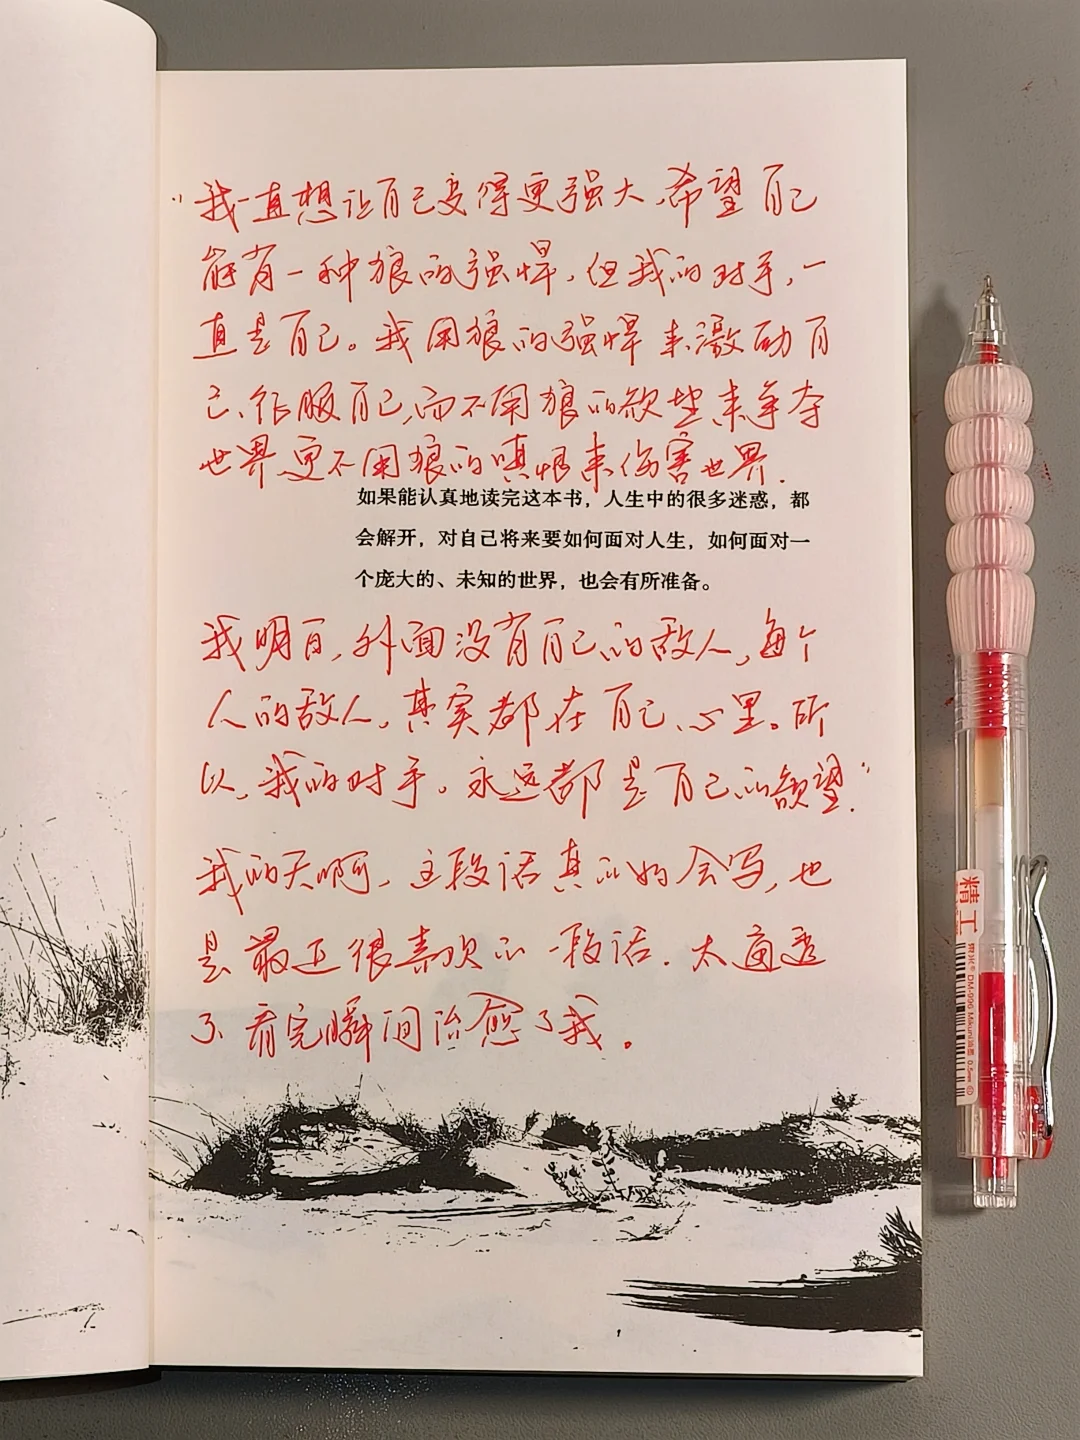 “我一直想让自己变得更强大,希望自己
能有一种狼的强悍,但我的对手,一
直是自己。我用狼的强悍来激励自
己、征服自己,而不用狼的欲望来争夺
世界更不用狼的嗔恨来伤害世界.
如果能认真地读完这本书，人生中的很多迷惑，都
会解开，对自己将来要如何面对人生，如何面对一
个庞大的、未知的世界，也会有所准备。
我明白,外面没有自己的敌人,每个
人的敌人,其实都在自己心里。所
以,我的对手。永远都是自己的欲望.”
我的天啊,这段话真的好会写,也
是最近很喜欢的一段话.太通透
了.看完瞬间治愈了我。
精工
DM-996 Mikuni 0.5mm